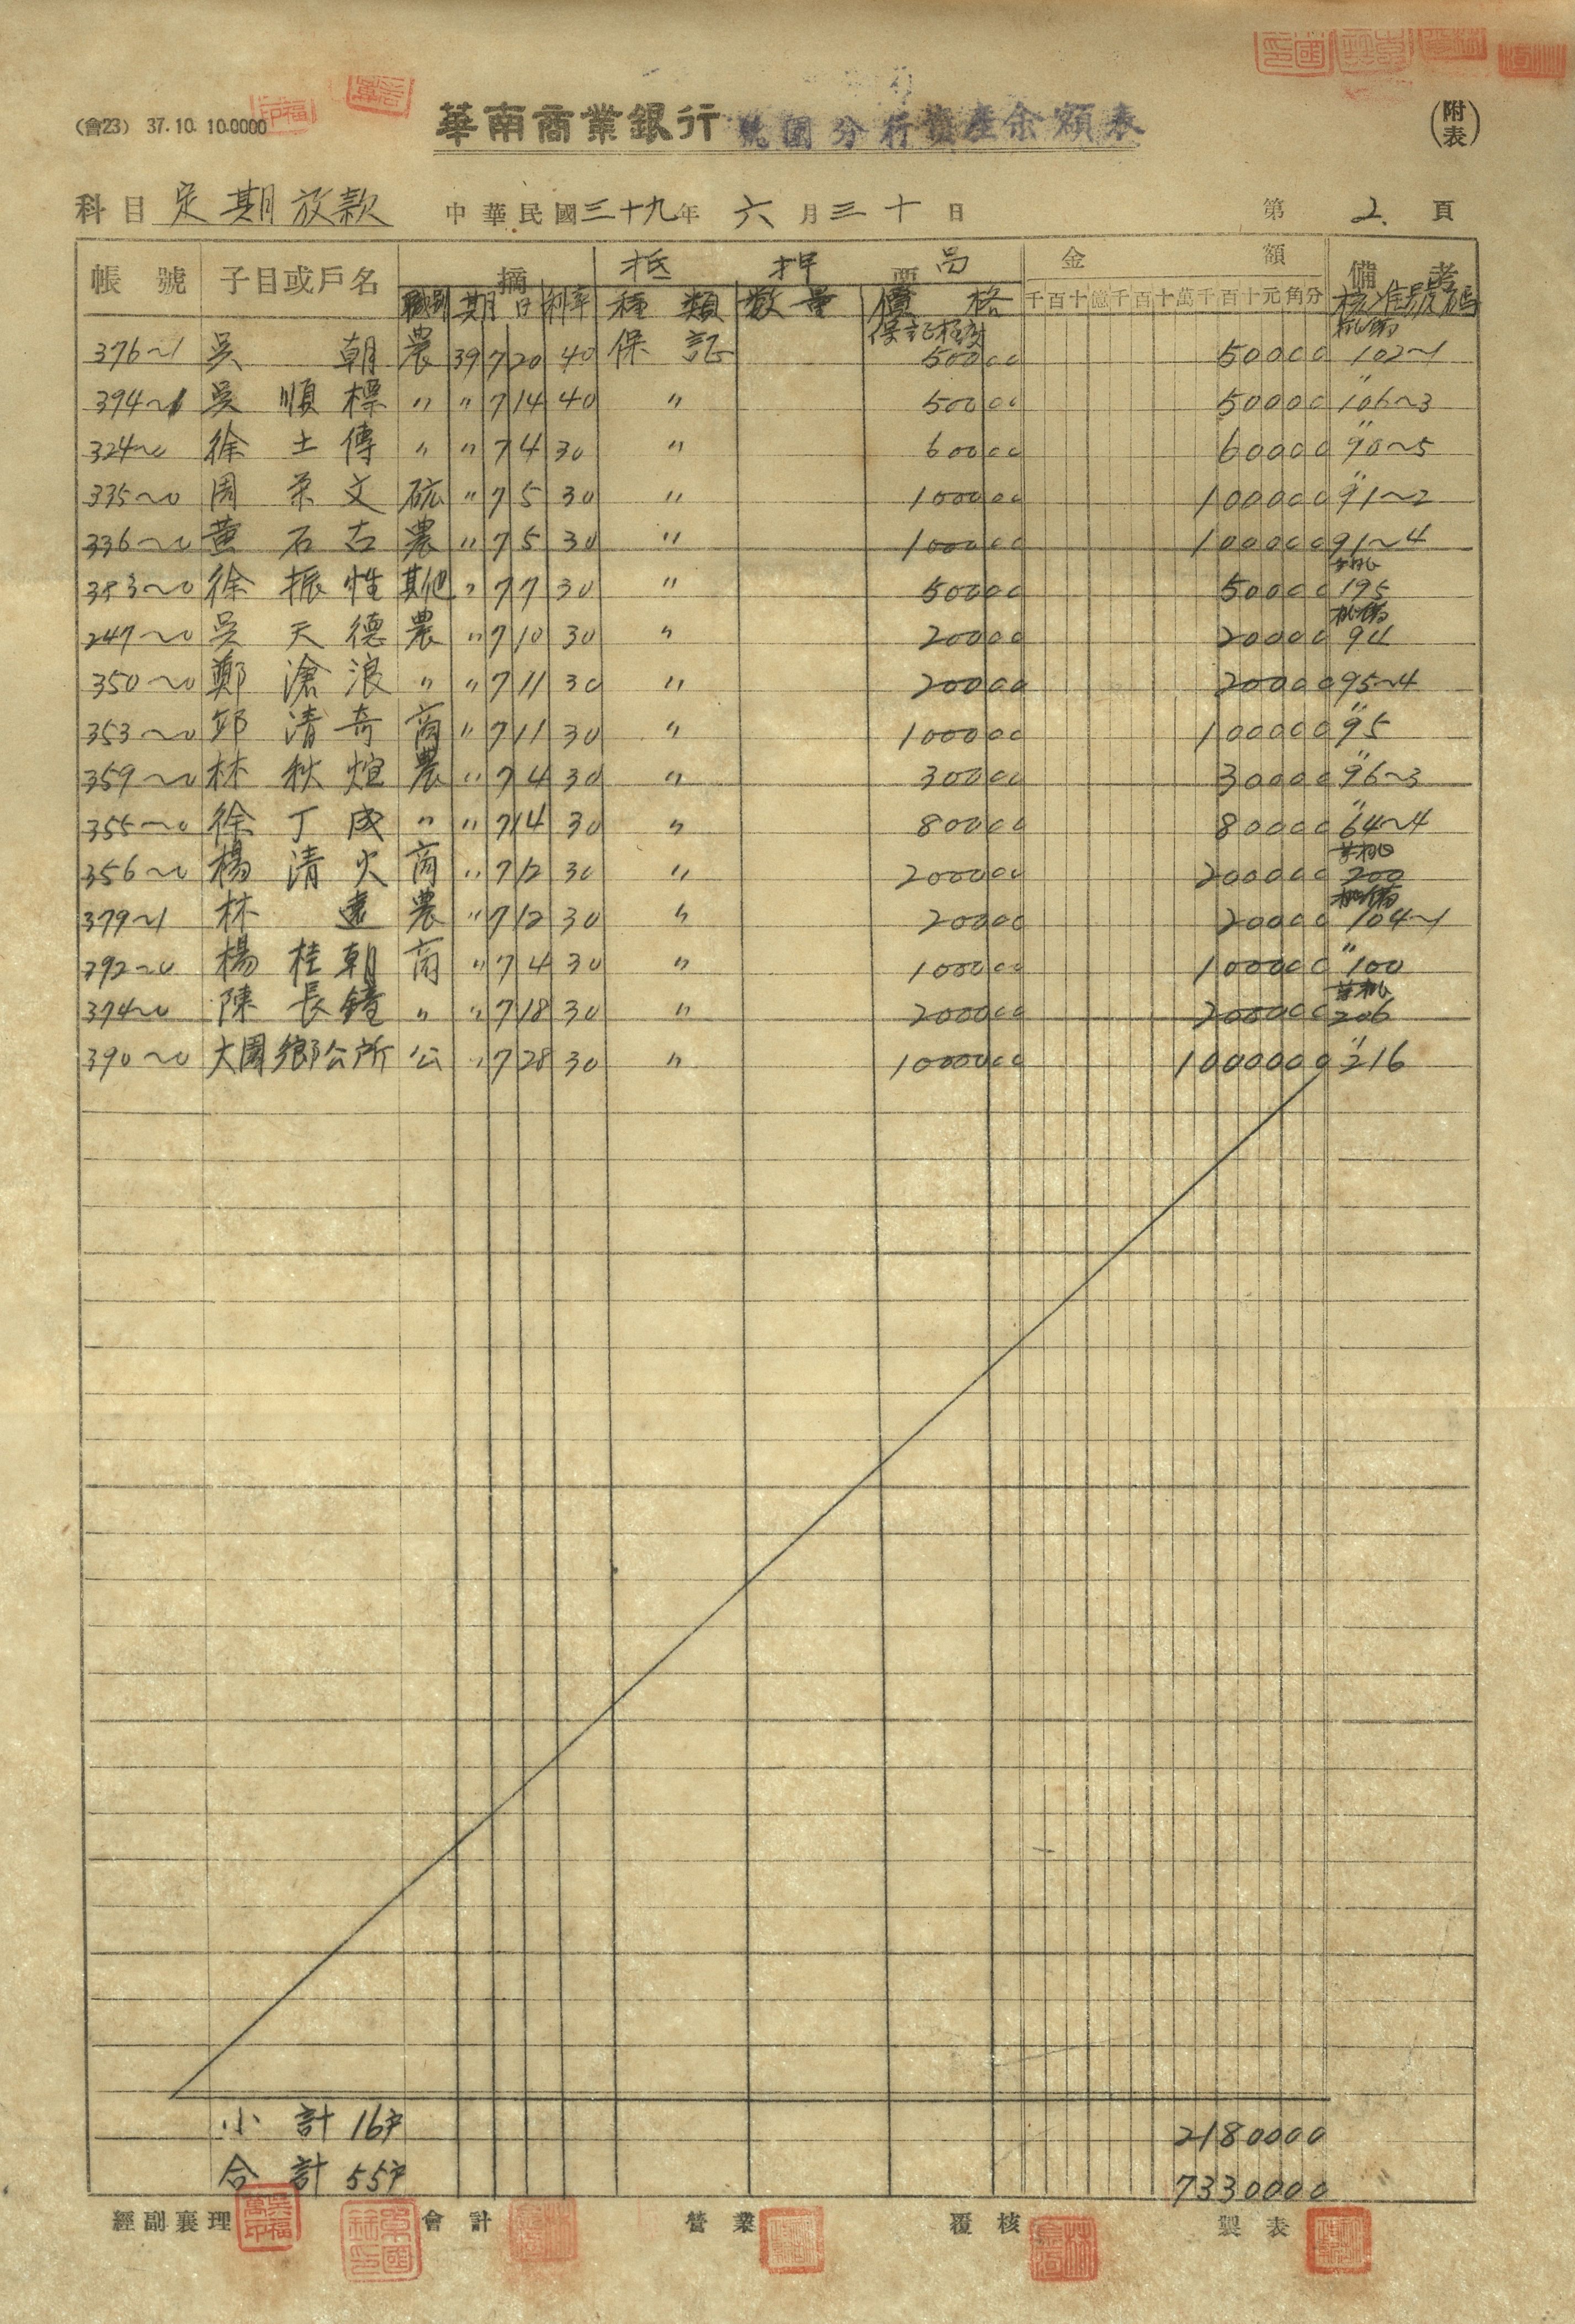 (會23) 37. 10. 10.0000
華南商業銀行 桃園分行資產余額表
(附表)
科目 定期放款 中華民國三十九年 六月三十日 第 2. 頁
帳號 子目或戶名 摘要 抵押品 金額 備考
職別 期日 利率 種類 数量 價格 千百十億千百十萬千百十元角分 核准號碼
保証極度
376~1 吳朝 農 39 7 20 40 保証 50000 50000 102~1
394~1 吳順標 〃 〃 7 14 40 〃 50000 50000 〃106~3
324~0 徐土傳 〃 〃 7 4 30 〃 60000 60000 〃90~5
335~0 周荣文 〃 7 5 30 〃 100000 100000 〃91~2
336~0 黃石古 農 〃 7 5 30 〃 100000 100000 91~4
383~0 徐振性 其他 〃 7 7 30 〃 50000 50000 195
247~0 吳天德 農 〃 7 10 30 〃 20000 20000
350~0 鄭滄浪 〃 〃 7 11 30 〃 20000 20000 95~4
353~0 邱清奇 商 〃 7 11 30 〃 100000 100000 〃95
359~0 林秋煌 農 〃 7 4 30 〃 30000 30000 〃96~3
355~0 徐丁成 〃 〃 7 14 30 〃 80000 80000 〃64~4
356~0 楊清火 商 〃 7 12 30 〃 200000 200000 200
379~1 林遠 農 〃 7 12 30 〃 20000 20000 104~1
392~0 楊桂朝 商 〃 7 4 30 〃 100000 100000 〃100
374~0 陳長鐘 〃 〃 7 18 30 〃 200000 200000 206
390~0 大園鄉公所 公 〃 7 28 30 〃 1000000 1000000 〃216
小計 16戶 2180000
合計 55戶 7330000
經副襄理 會計 營業 覆核 製表